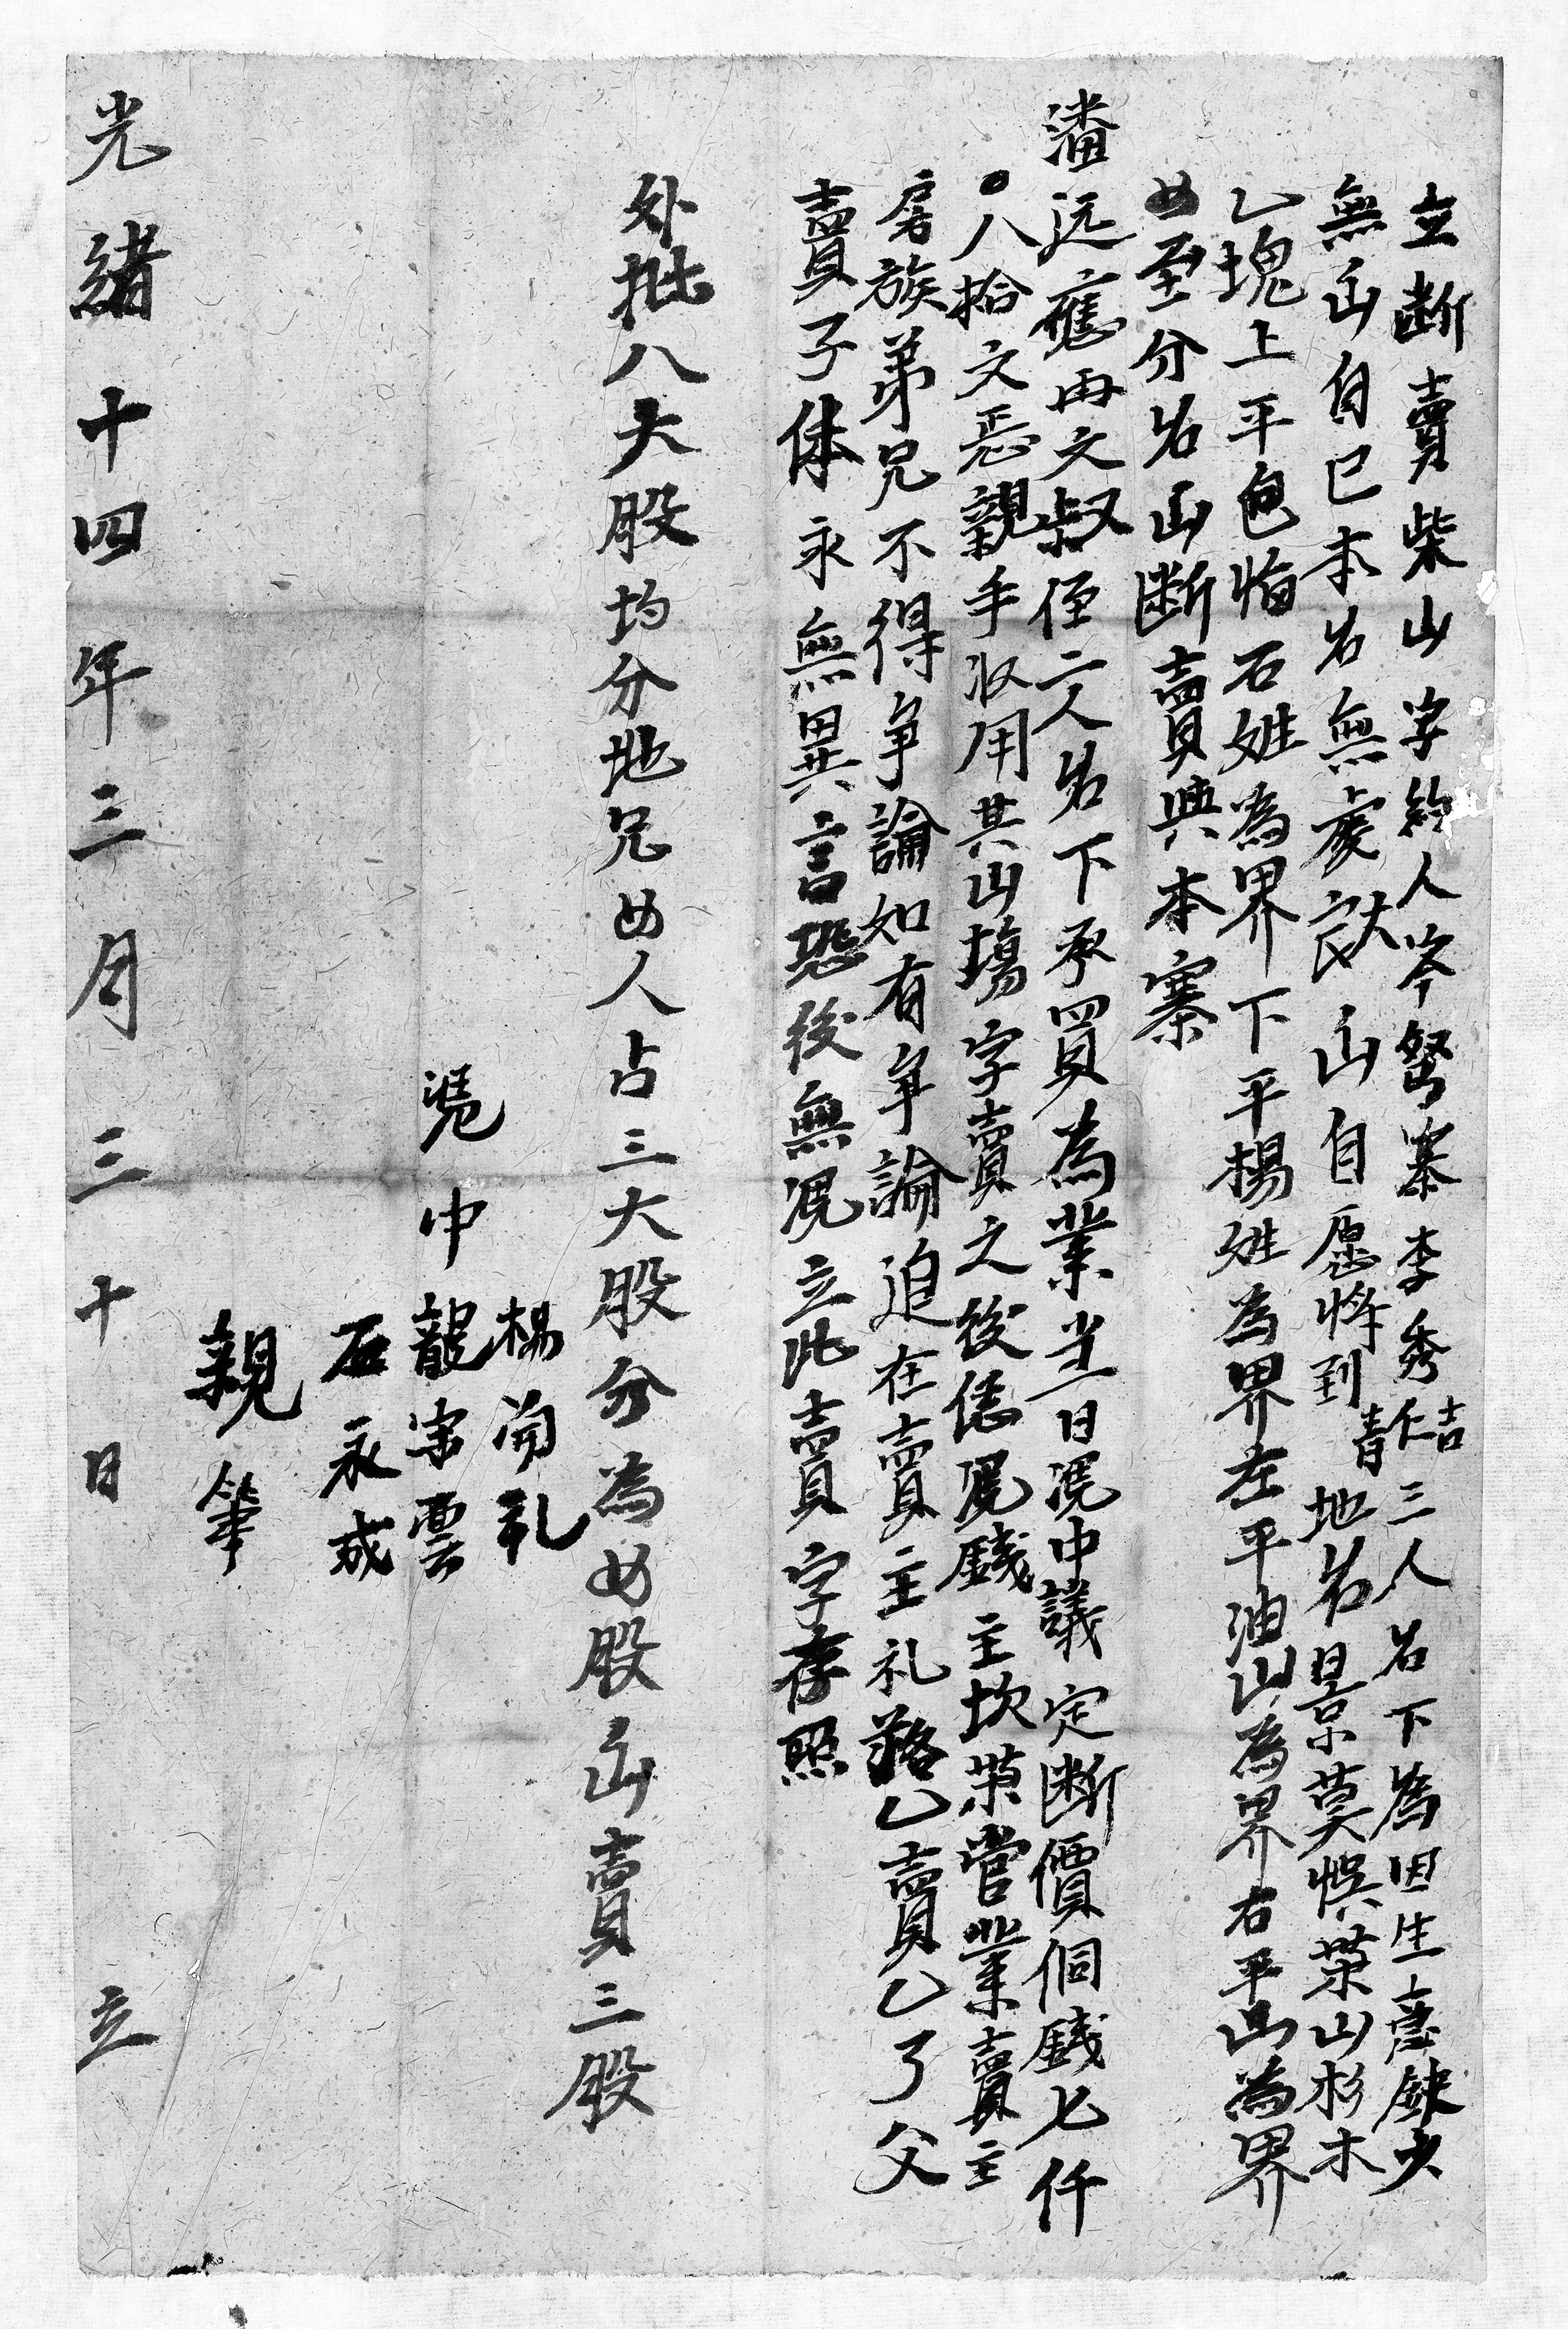 立断賣柴山字約人岑努寨李秀吉仁青三人名下為因生意缺少
無山自己本名無處設法山自愿將到地名景莫悞葉山杉木
乙塊上平包怕石姓為界下平楊姓為界左平油山為界右平山為界
四至分名山断賣與本寨
潘远應再文叔侄二人名下承買為業当日凴中議定断價侗錢七仟
○八拾文恶親手收用其山塲字賣之後憑錢主坎葉管業賣主
房族弟兄不得争論如有争論追在賣主礼落乙賣乙了父
賣子休永無異言恐後無凴立此賣字存照
外批八大股均分地兄四人占三大股分為四股山賣三股
楊開礼
凴中龍宗雲
石永成
親筆
光緒十四年三月三十日立